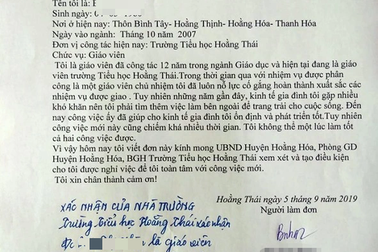 Tên tôi là:
Sinh ngày:
Nơi ở hiện nay: Thôn Bình Tây- Hoằng Thịnh- Hoằng Hóa- Thanh Hóa
Ngày vào ngành: Tháng 10 năm 2007
Đơn vị công tác hiện nay: Trường Tiểu học Hoằng Thái
Chức vụ: Giáo viên
Tôi là giáo viên đã công tác 12 năm trong ngành Giáo dục và hiện tại đang là giáo
viên trường Tiểu học Hoằng Thái.Trong thời gian qua với nhiệm vụ được phân
công là một giáo viên chủ nhiệm tôi đã luôn nỗ lực cố gắng hoàn thành xuất sắc các
nhiệm vụ được giao . Tuy nhiên những năm gần đây, kinh tế gia đình tôi gặp nhiều
khó khăn nên tôi phải tìm thêm việc làm bên ngoài để trang trải cho cuộc sống. Đến
nay công việc ấy đã giúp cho kinh tế gia đình tôi ổn định và phát triển tốt.Tuy nhiên
công việc mới này cũng chiếm khá nhiều thời gian. Tôi không thể một lúc làm tốt
cả hai công việc được.
Vì vậy hôm nay tôi viết đơn này kính mong UBND Huyện Hoằng Hóa, Phòng GD
Huyện Hoằng Hóa, BGH Trường Tiểu học Hoằng Thái xem xét và tạo điều kiện
cho tôi được nghỉ việc để tôi toàn tâm với công việc mới.
Tôi xin chân thành cảm ơn!
Hoằng Thái ngày 5 tháng 9 năm 2019
Người làm đơn
XÁC NHẬN CỦA NHÀ TRƯỜNG
Trường Tiểu học Hoằng Thái xác nhận
là giáo viên